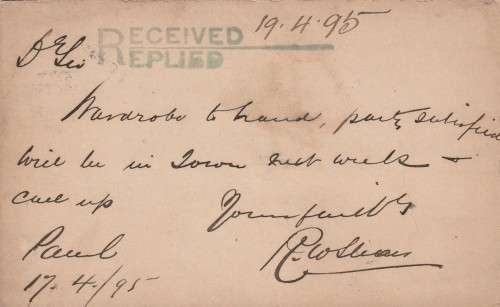 RECEIVED 19.4.95
REPLIED
Dr Sir
Wardrobe to hand, party satisfied
will be in Town next week &
call up
Yours faithfly
Paarl
17.4/95